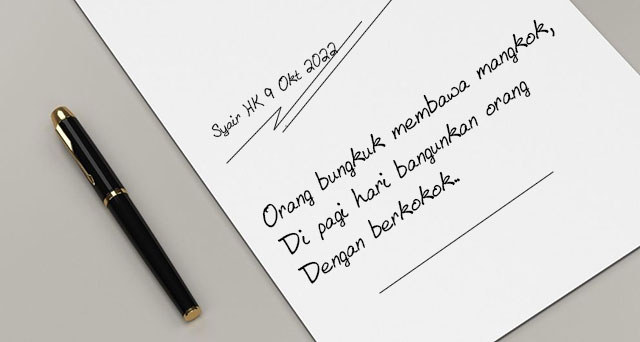 Syair HK 9 Okt 2022
Orang bungkuk membawa mangkok,
Di pagi hari bangunkan orang
Dengan berkokok..